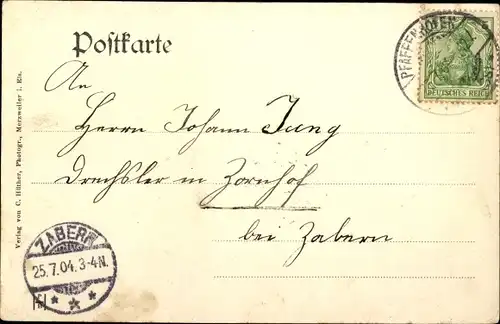 Postkarte
PFAFFENHOFEN
5
DEUTSCHES REICH
An
Herrn Johann Jung
Drechsler in Zornhof
bei Zabern
ZABERN
25.7.04.3-4N.
Verlag von C. Hüther, Photogr., Merzweiler i. Els.